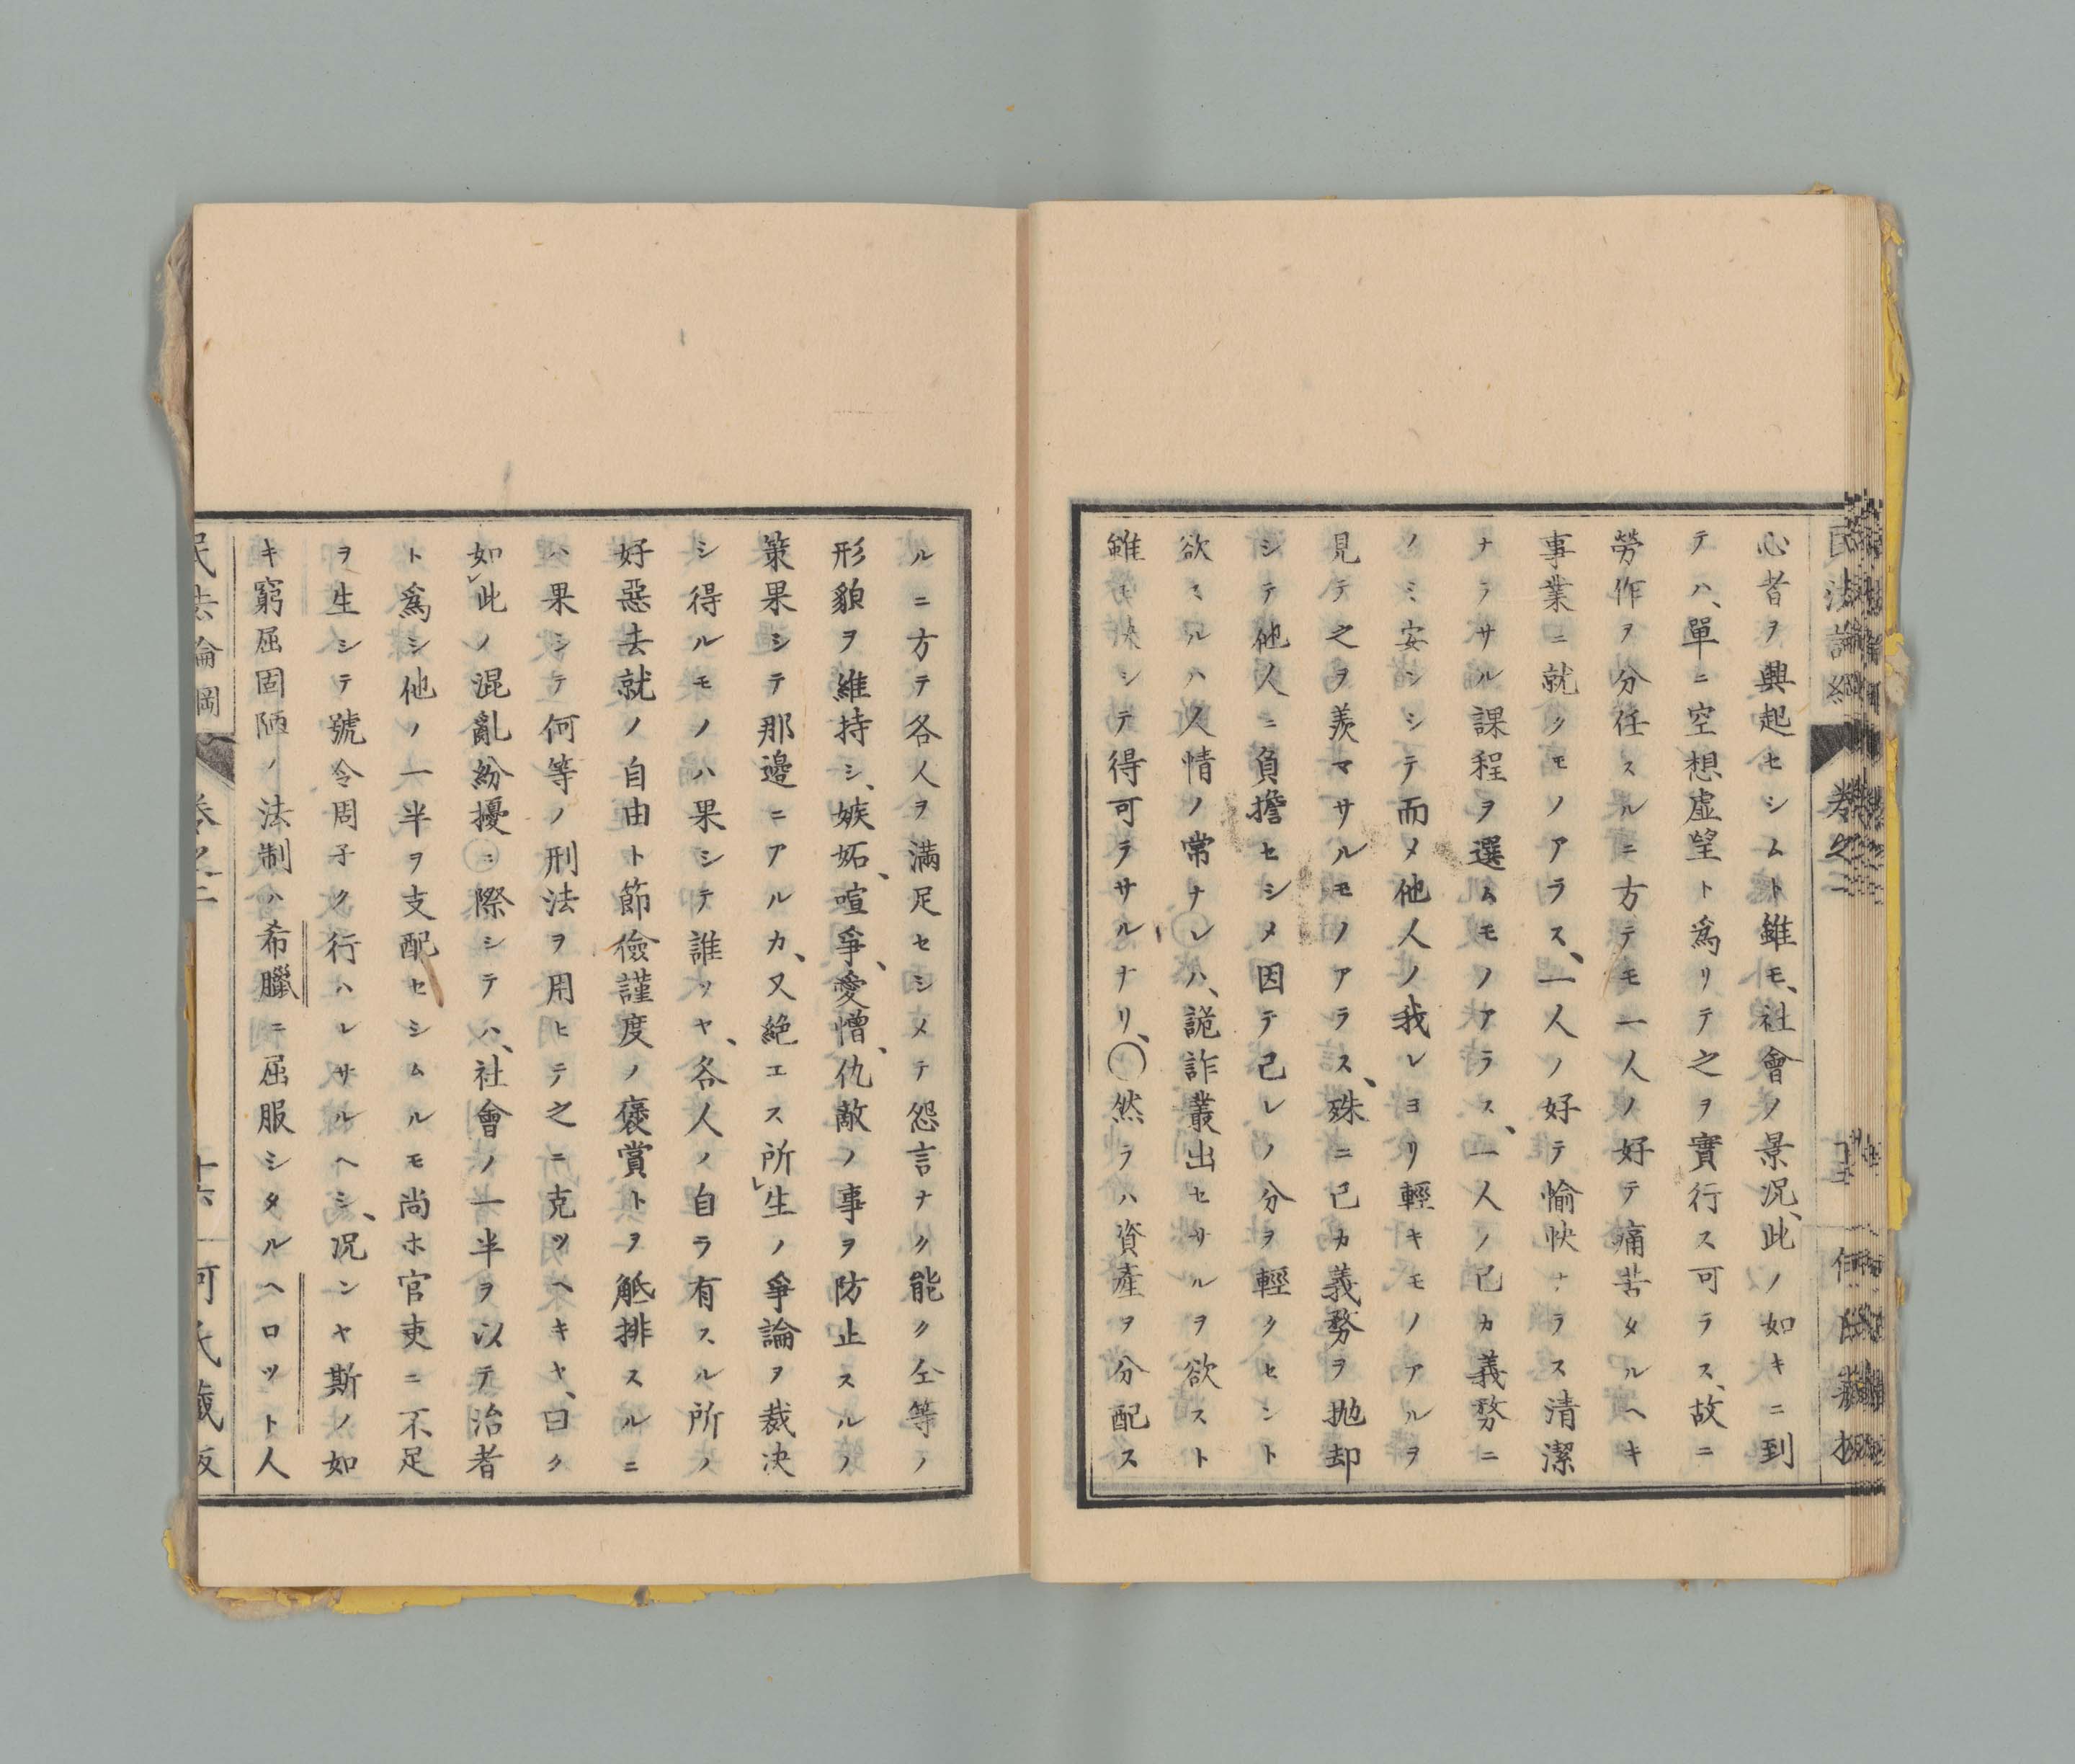 心者ヲ興起セシムト雖モ、社會ノ景况、此ノ如キニ到
テハ、單ニ空想虚望ト爲リテ之ヲ實行ス可ラス、故ニ
勞作ヲ分任スルニ方テモ一人ノ好テ痛苦タルヘキ
事業ニ就クモノアラス、一人ノ好テ愉快ナラス清潔
ナラサル課程ヲ選ムモノアラス、一人ノ已カ義務ニ
ノミ安シシテ而メ他人ノ我レヨリ輕キモノアルヲ
見テ之ヲ羨マサルモノアラス、殊ニ已カ義務ヲ抛却
シテ他人ニ負擔セシメ因テ己レノ分ヲ輕クセント
欲スルハ人情ノ常ナレハ、詭詐叢出セサルヲ欲スト
雖モ決シテ得可ラサルナリ、〇然ラハ資產ヲ分配ス
民法論綱 卷之二
ルニ方テ各人ヲ滿足セシメテ怨言ナク能ク仝等ノ
形貌ヲ維持シ、嫉妬、喧爭、愛憎、仇敵ノ事ヲ防止スルノ
策果シテ那邊ニアルカ、又絶エス所生ノ爭論ヲ裁决
シ得ルモノハ果シテ誰ソヤ、各人ノ自ラ有スル所ノ
好惡去就ノ自由ト節儉謹度ノ褒賞トヲ觝排スルニ
ハ果シテ何等ノ刑法ヲ用ヒテ之ニ克ツヘキヤ、曰ク
如此ノ混亂紛擾ニ際シテハ、社會ノ一半ヲ以テ治者
ト爲シ他ノ一半ヲ支配セシムルモ尚ホ官吏ニ不足
ヲ生シテ號令周子ク行ハレサルヘシ、况ンヤ斯ノ如
キ窮屈固陋ノ法制ハ希臘ニ屈服シタルヘロット人
民法論綱 卷之二 十六 何氏藏版